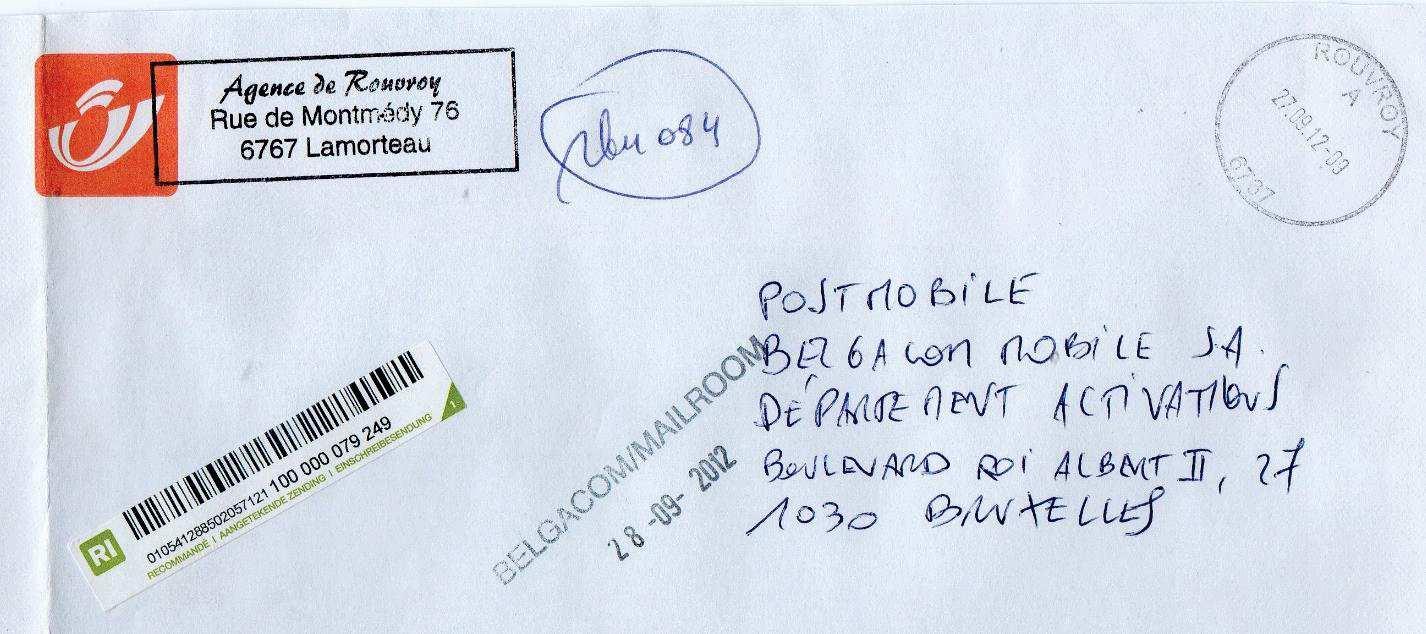 Agence de Rouvroy
Rue de Montmédy 76
6767 Lamorteau
084
ROUVROY
A
27.09.12-09
6767
POSTMOBILE
BELGACOM MOBILE S.A.
DÉPARTEMENT ACTIVATIONS
BOULEVARD ROI ALBERT II, 27
1030 BRUXELLES
BELGACOM/MAILROOM
28-09-2012
RI
010541288502057121 100 000 079 249
RECOMMANDÉ I AANGETEKENDE ZENDING I EINSCHREIBESENDUNG
1